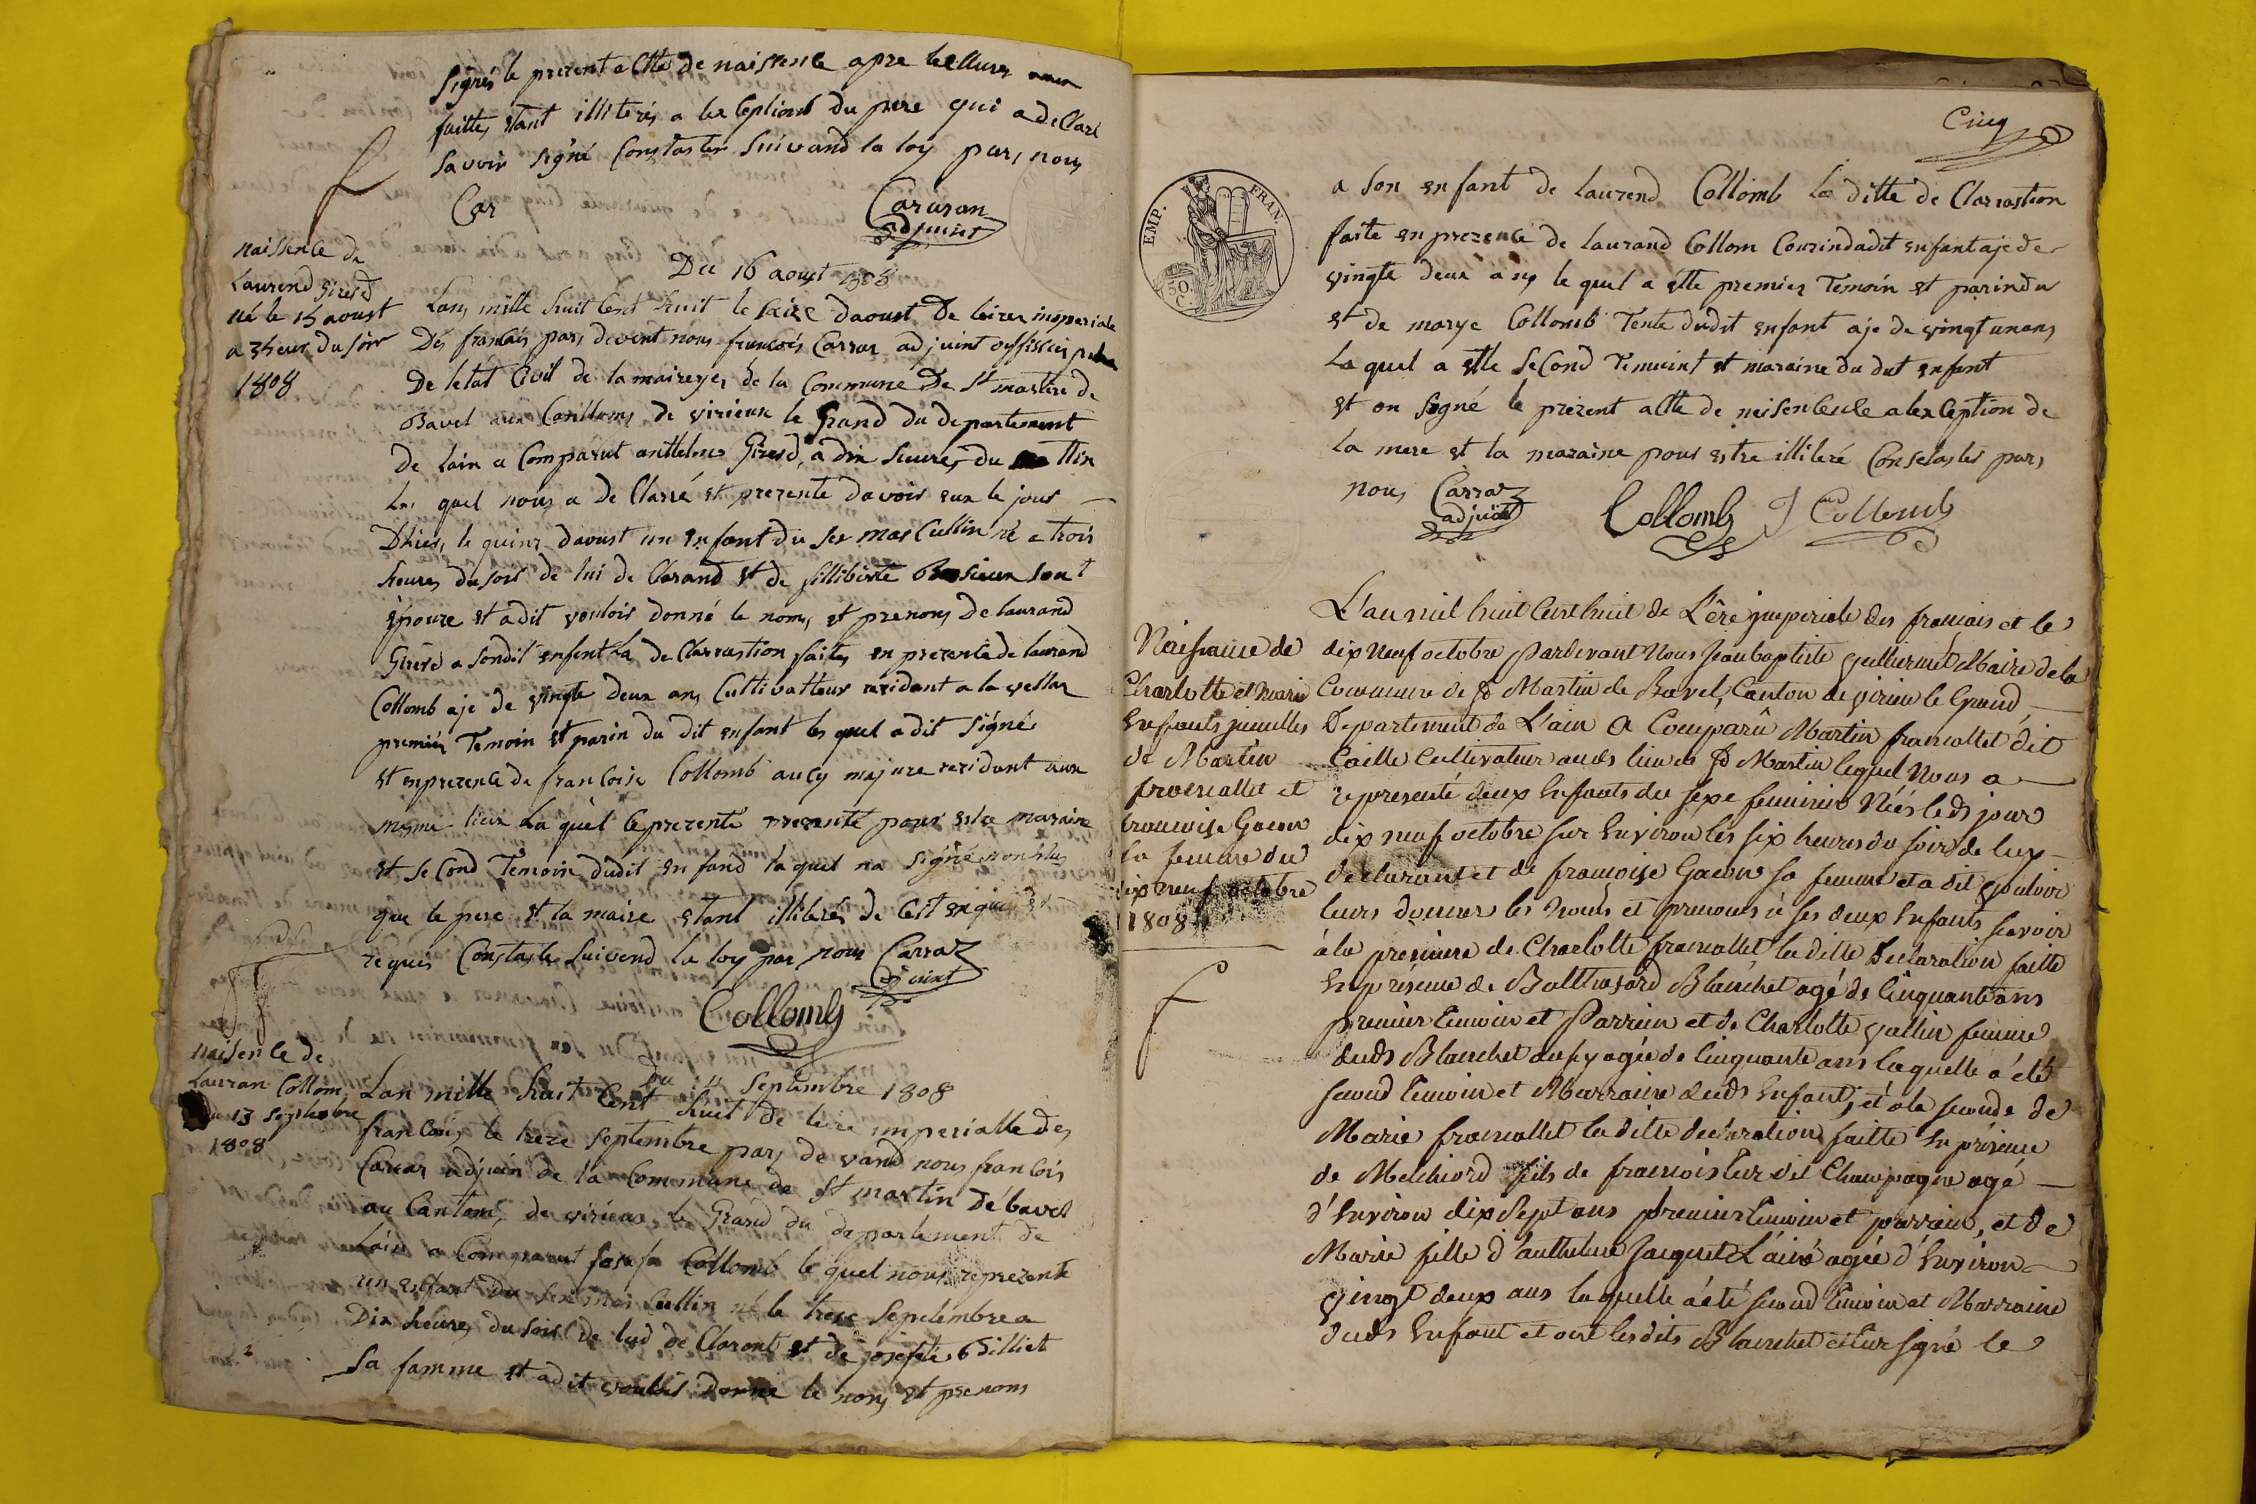 signés le prezent actte de naissence apre lecllures
faittes etant illiterés a lexseptiont du pere qui a declaré
savoir signé Constaster suivand la loy pars nous
Car
Cararon
adjuint
naissence de
Laurend girerd
né le 15 aoust
a 3 heur du soir
1808
Du 16 aoust 1808
Lans mille huit Cent huit le seize daoust De leirer imperiale
Des francais pars devent nous francois Carraz adjuint offissier
De letat Civil de la maireyes de la Commune De St martin de
Bavel aux Canttons de virieux le Grand du departement
De lain a Comparut anttelme Girerd, a dix heures du ttin
Le quel nous a de Clarré et prezenté davoir eux le jour
Dhier, le quinz daoust un enfant du sex mas Cullin né a trois
heures du soir de lui de Clarand et de fillibirte sont
epouze et a dit voulois donné le noms et prenoms de laurand
Girerd a sondit enfent la de Clarrastion faites en prezence de laurand
Collomb aje de vingte deux ans Culttivatteur rezidant a la vellas
premiér Temoin et parin du dit enfant les quel a dit signé
et en prezence de francoise Collomb aucy majure rezidant aux
meme lieux La quel ce prezente prezenté pour estre maraine
et seCond Temoin dudit en fand la quel na signé non plus
que le pere et la maire etant illiterés de Cest enquis
requis Constaste suivend la loy par nous Carraz
adjuint
Collomb
naisence de
Lauran Collom
du 13 septembre
1808
Du 14 septembre 1808
Lan mille huit Cent huit de leire imperialle des
francois le treze septembre pars de vand nous francois
Carraz adjuin de la Commune de St martin dé bavel
au Cantons de virieux le Grand du departement de
Lain a Comparut Collomb le quel nous reprezente
un enffant du sex mas Cullin né le treze septembre a
Dix heures du soir de luy de Claront et de josefte Billiet
sa famme et a dit voulois Donné le nons et prenoms
Cinq
EMP. FRAN.
50 C.
a son enfant de laurend Collomb la ditte de Clarrastion
faite en prezence de laurand Collom Couzin dudit enfant aje de
vingte deux ans le quel a ette premier Temoin et parin du
et de marye Collomb Tente dudit enfant aje de vingt un ans
La quel a ette seCond Temuint et maraine du dit enfant
et on signé le prezent actte de a lexCeption de
La mere et la maraine pour estre illiteré pars
nous Carraz
adjuint
Collomb J Collomb
L'an mil huit Cent huit de L'ère jmperiale des français et le
dix Neuf octobre Pardevant Nous Jean baptiste Maire de la
Commune de St Martin de Bavel, Canton de virieu le Grand
Departement de L'ain A Comparû Martin francallet dit
Caille Cultivateur auds lieu de St Martin lequel Nous a
representé deux Enfants du sexe feminin Nées le ds jour
dix neuf octobre sur Environ les six heures du soir de luy
declarant et de françoise Gacon sa femme et a dit vouloir
leurs donner les Noms et prenoms à ses deux Enfants scavoir
à la premiere de Charlotte francallet la ditte declaration faitte
En présence de Balthasard Blanchet agé de Cinquante ans
premier temoin et Parrein et de Charlotte vallin femme
duds Blanchet aussy agée de Cinquante ans laquelle a été
second temoin et Marraine duds Enfant; et à la seconde de
Marie francallet la ditte declaration faitte En présence
de Melchiord fils de francois tur dit Champagne agé
d'Environ dix Sept ans premier temoin et parrein, et de
Marie fille d'anthelme Jacquet L'ainé agée d'Environ
vingt deux ans laquelle a été second temoin et Marraine
duds Enfant et ont lesdits Blanchet et tur signé le
Naissance de
Charlotte et Marie
Enffants jumelles
de Martin
francallet et
francoise Gacon
sa femme du
dix neuf octobre
1808